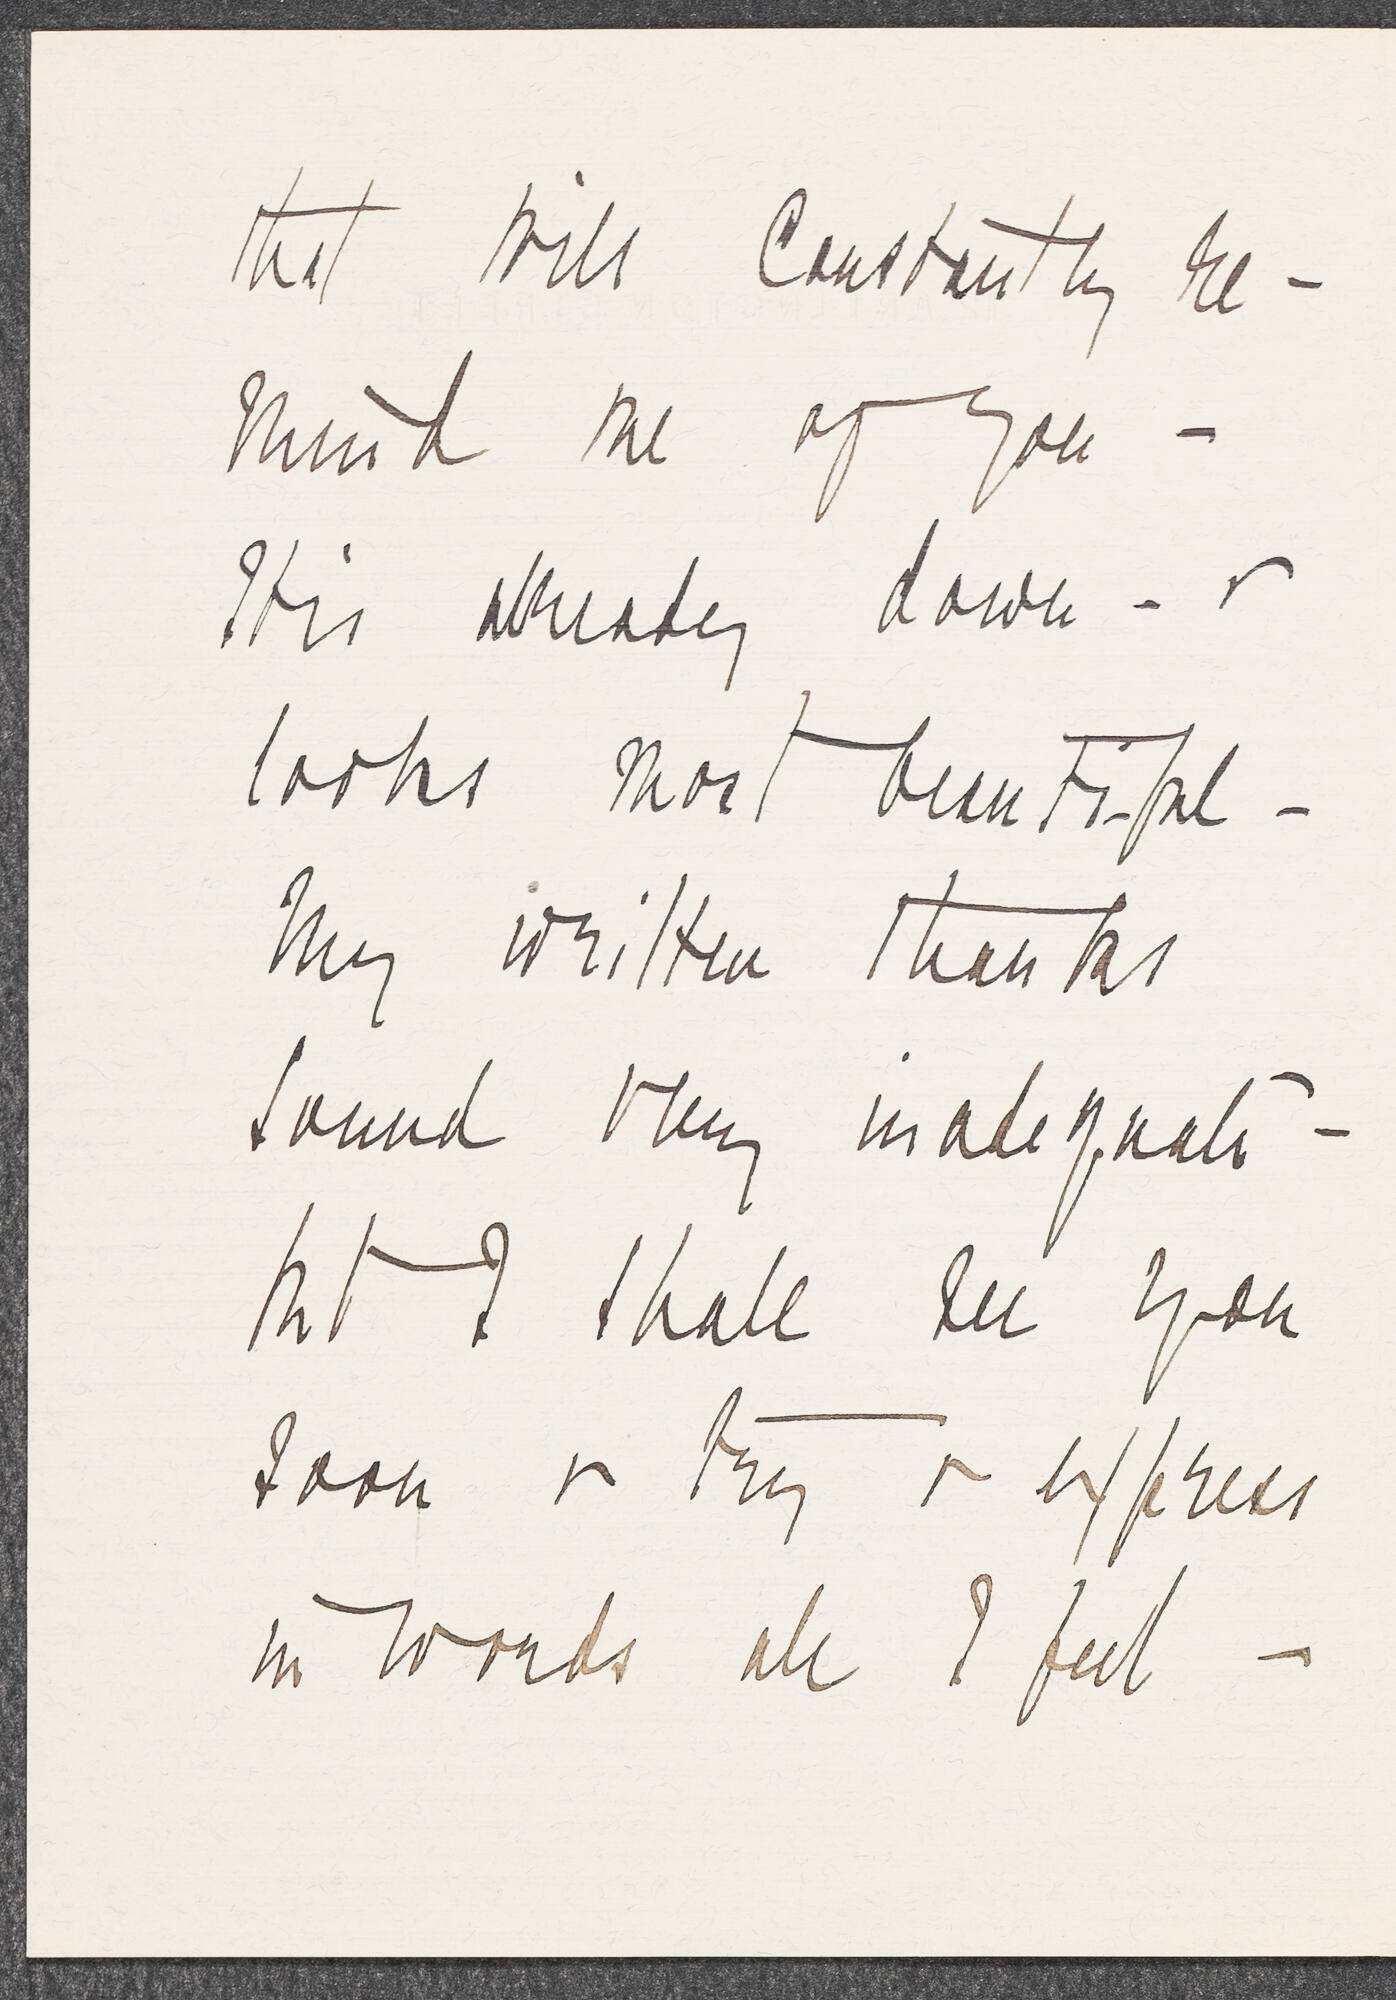 that will constantly re-
mind me of you -
It is already down - &
looks most beautiful -
My written thanks
sound very inadequate -
but I shall see you
soon & try & express
in words all I feel -